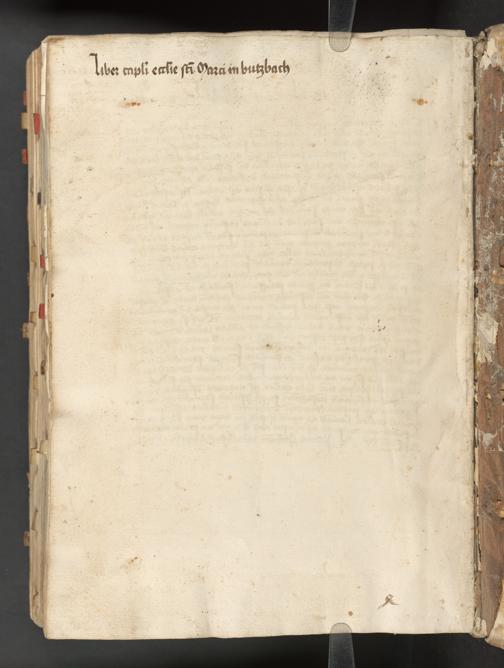 Liber capli ecclie sti Marci in butzbach